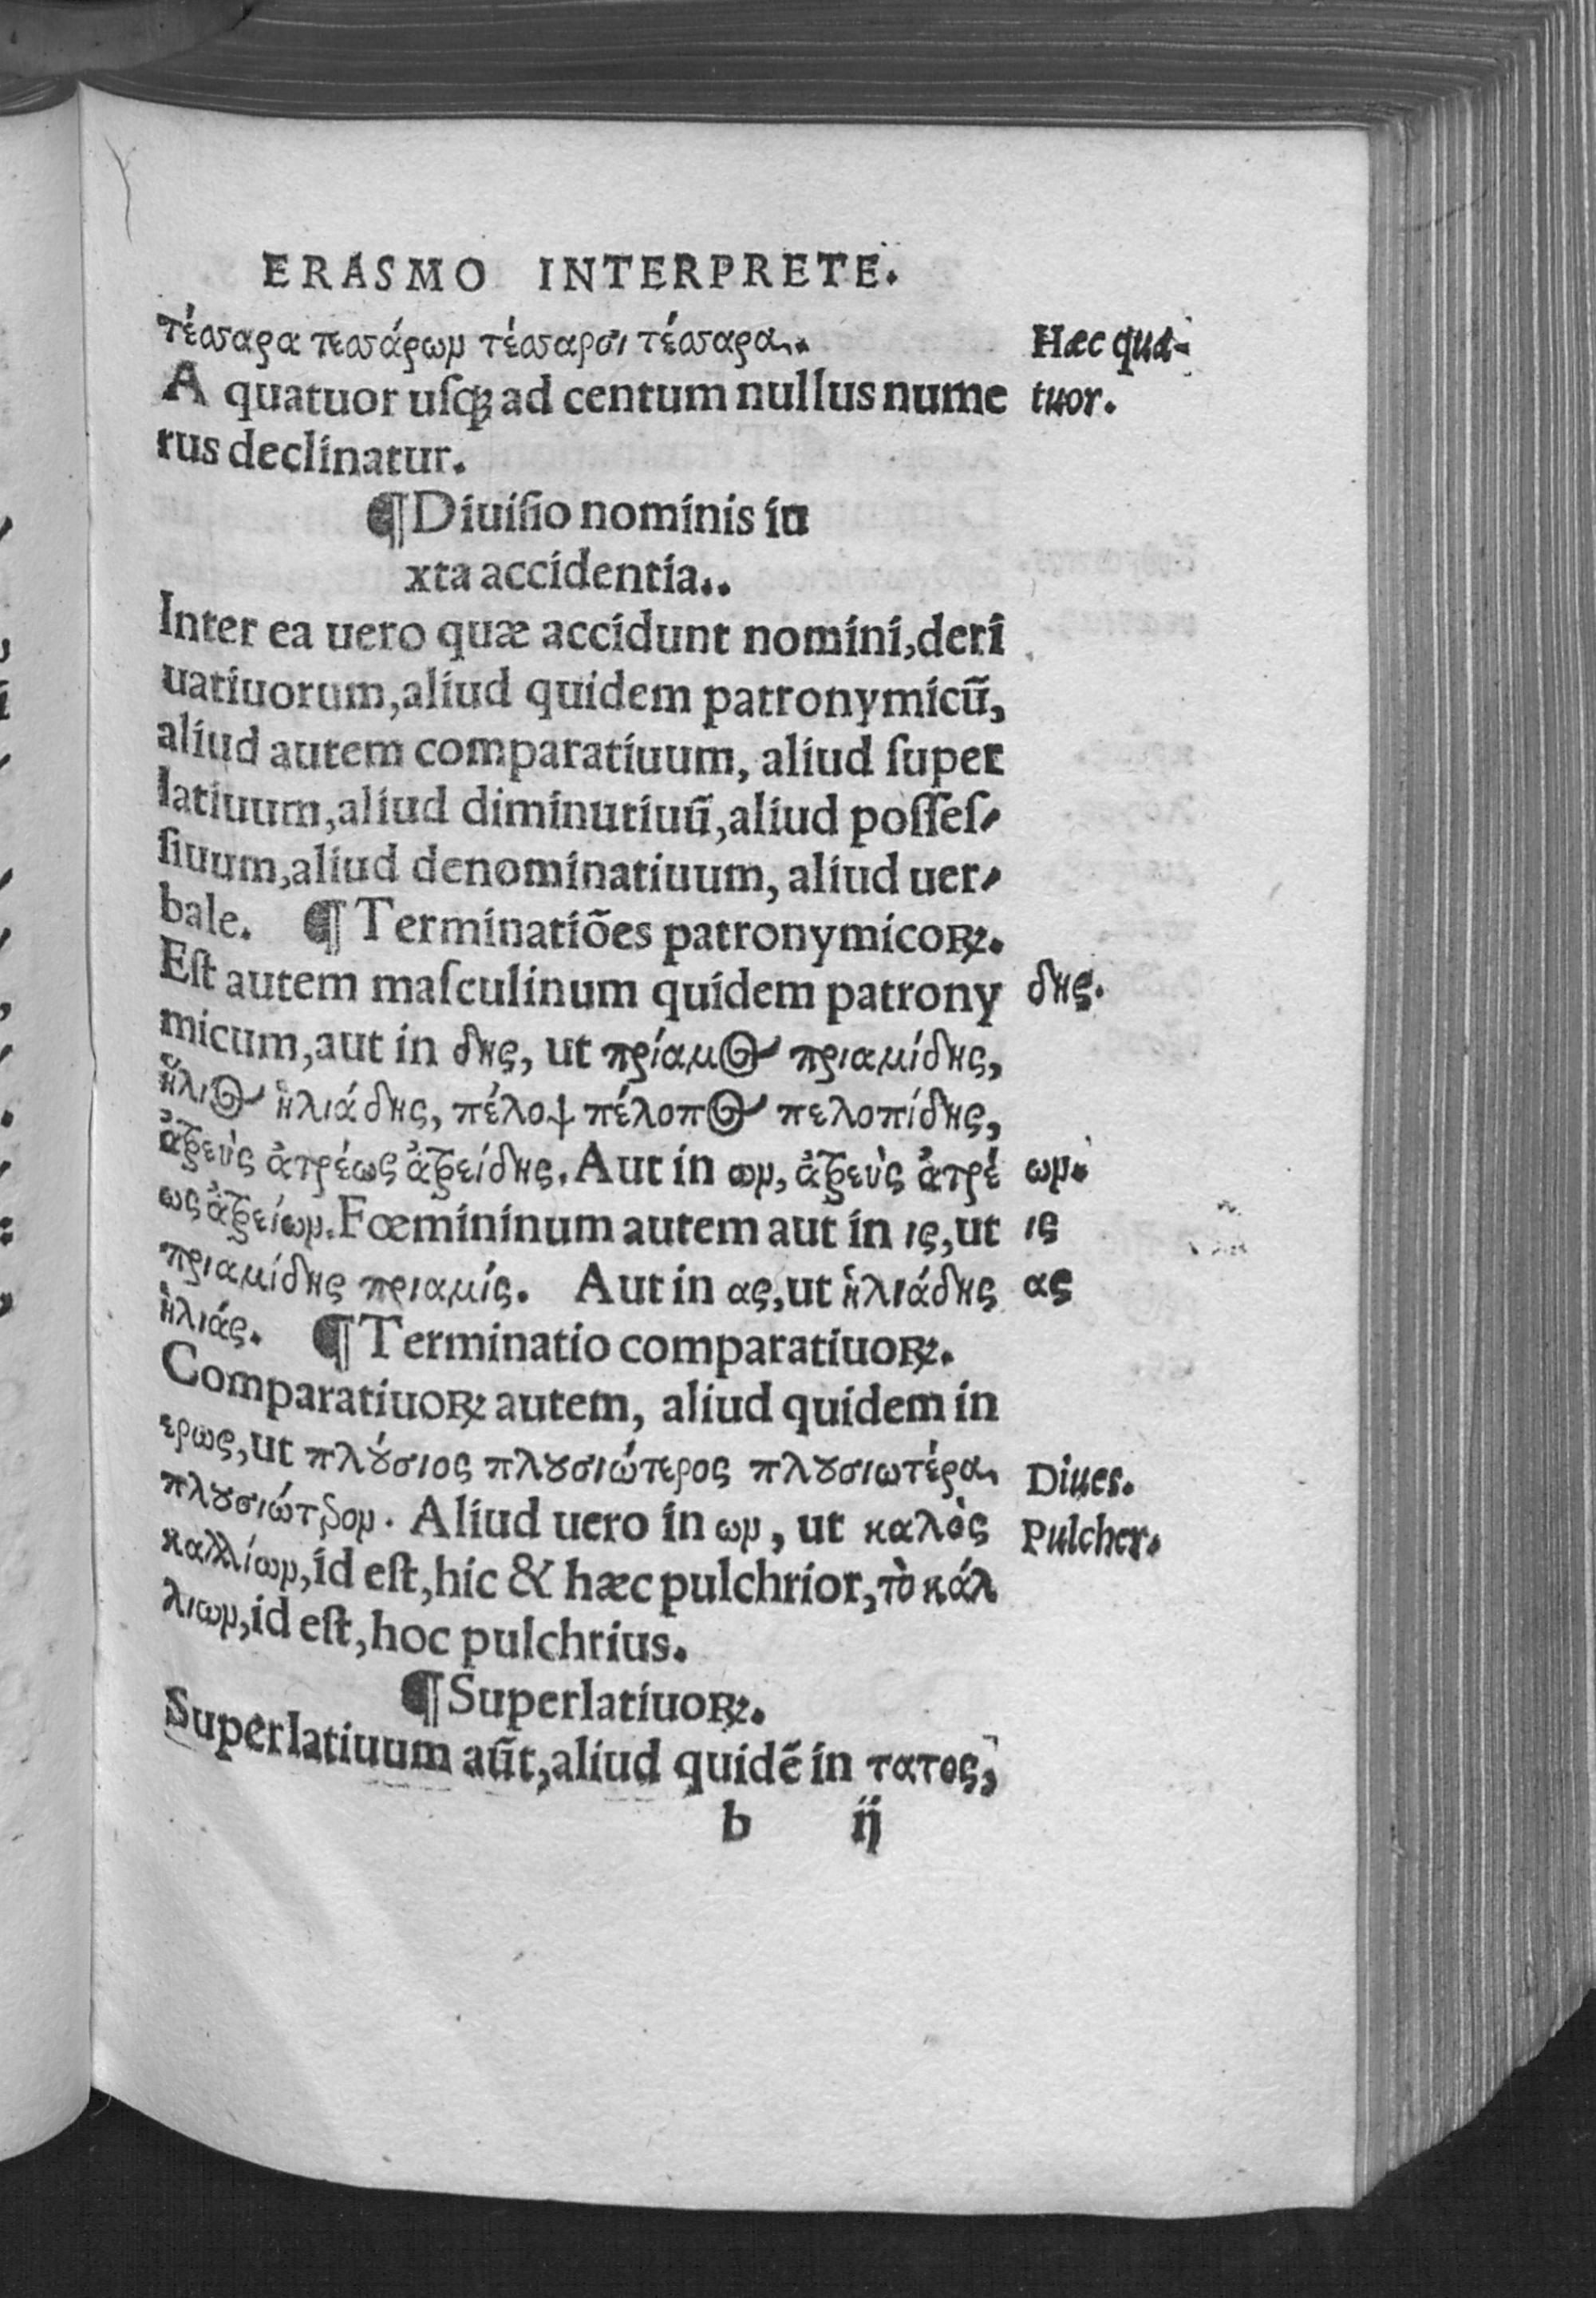 ERASMO INTERPRETE.
τέσσαρα τεσσάρων τέσσαρσι τέσσαρα.
Hæc qua-
A quatuor usq; ad centum nullus nume
tuor.
rus declinatur.
¶ Diuisio nominis iu
xta accidentia..
Inter ea uero quæ accidunt nomini, deri
uatiuorum, aliud quidem patronymicū,
aliud autem comparatiuum, aliud super
latiuum, aliud diminutiuū, aliud posses-
siuum, aliud denominatiuum, aliud uer-
bale. ¶ Terminatiões patronymicoꝝ.
Est autem masculinum quidem patrony
δης.
micum, aut in δης, ut πρίαμος πριαμίδης,
ἥλιος ἡλιάδης, πέλοψ πέλοπος πελοπίδης,
ἀτρεὺς ἀτρέως ἀτρείδης. Aut in ων, ἀτρεὺς ἀτρέ
ων.
ως ἀτρείων. Fœmininum autem aut in ις, ut
ις
πριαμίδης πριαμίς. Aut in ας, ut ἡλιάδης
ας
ἡλιάς. ¶ Terminatio comparatiuoꝝ.
Comparatiuoꝝ autem, aliud quidem in
ερως, ut πλούσιος πλουσιώτερος πλουσιωτέρα
Diues.
πλουσιώτερον. Aliud uero in ων, ut καλὸς
Pulcher.
καλλίων, id est, hic & hæc pulchrior, τὸ κάλ
λιων, id est, hoc pulchrius.
¶ Superlatiuoꝝ.
Superlatiuum aūt, aliud quidē in τατος,
b ij